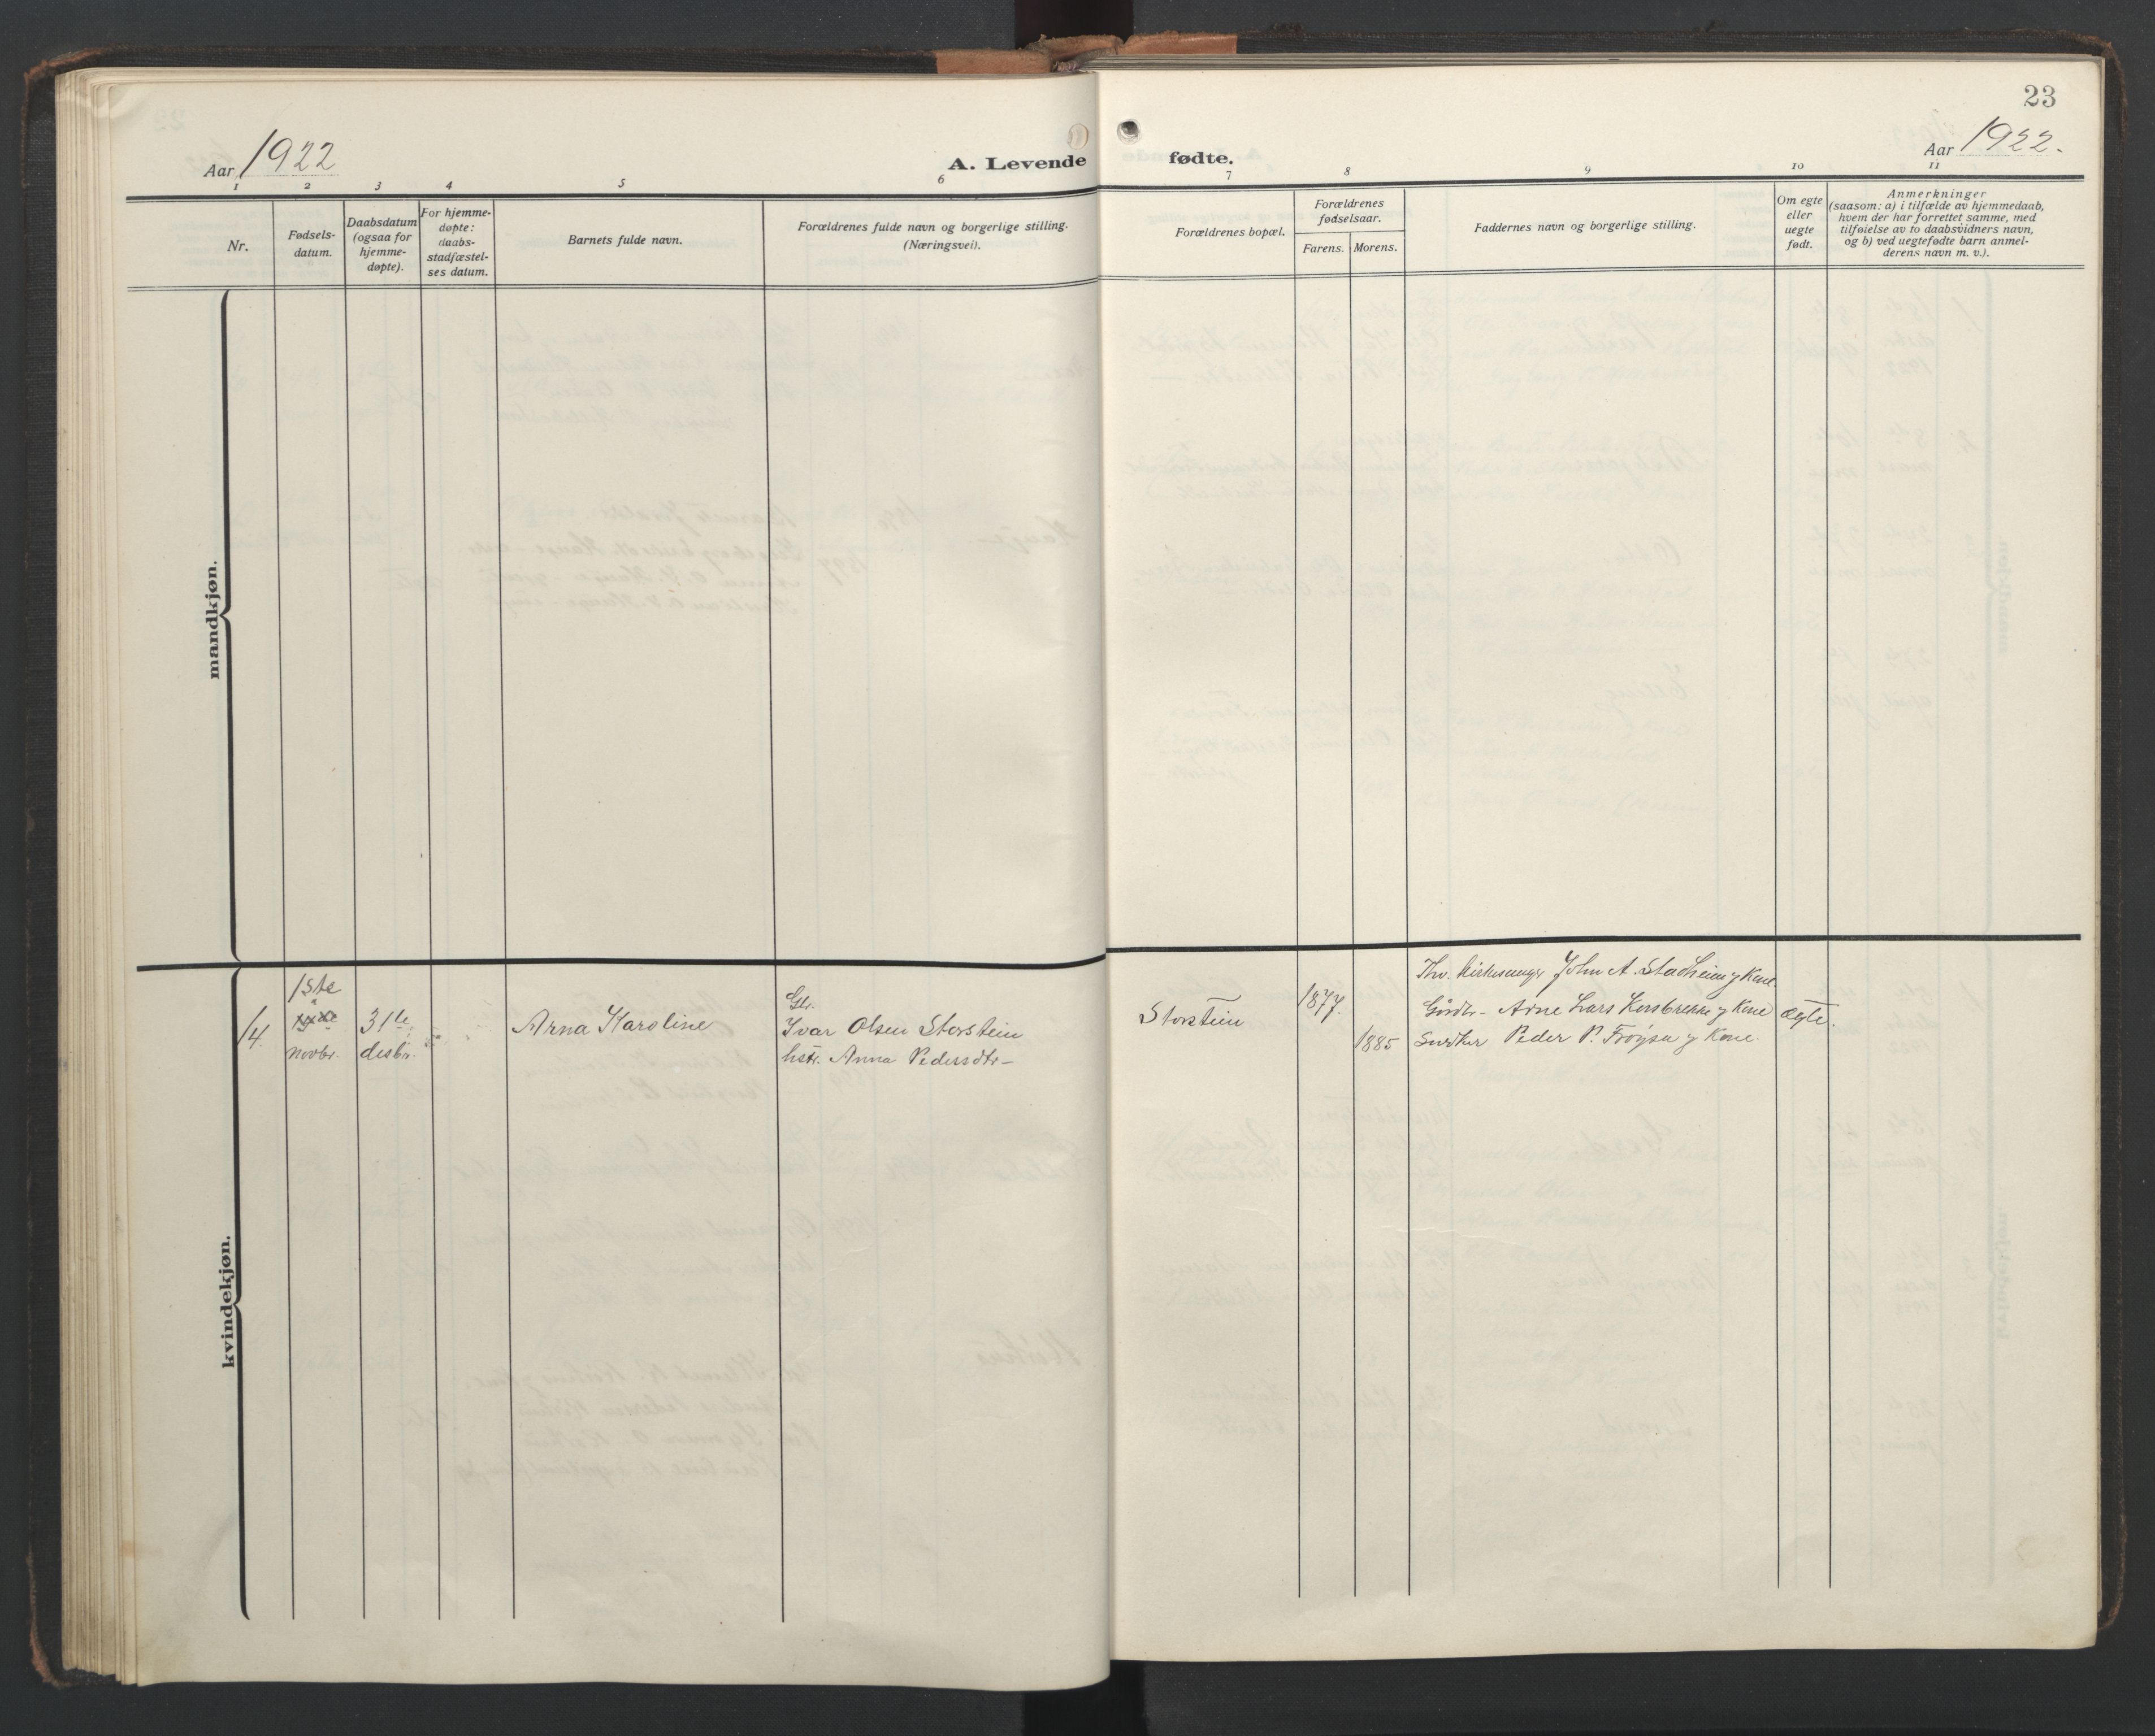 23
Aar 1922
A. Levende
fødte.
Aar 1922.
1 2 3 4 5 6 7 8 9 10 11
Nr.
Fødsels-
datum.
Daabsdatum
(ogsaa for
hjemme-
døpte).
For hjemme-
døpte:
daabs-
stadfæstel-
ses datum.
Barnets fulde navn.
Forældrenes fulde navn og borgerlige stilling.
(Næringsvei).
Forældrenes bopæl.
Forældrenes
fødselsaar.
Farens. Morens.
Faddernes navn og borgerlige stilling.
Om egte
eller
uegte
født.
Anmerkninger
(saasom: a) i tilfælde av hjemmedaab,
hvem der har forrettet samme, med
tilføielse av to daabsvidners navn,
og b) ved uegtefødte barn anmel-
derens navn m. v.).
mandkjøn.
kvindekjøn.
14.
1ste
novbr.
31te
desbr.
Arna Karoline
Gbr.
Ivar Olsen Storstein
hstr. Anna Pedersdtr-
Storstein
1877.
1885
Kirkesanger John A. Stadheim og Kone.
Gårdbr- Arne Lars Korsbrekke og Kone
Peder P. Frøysa og Kone.
Ægte.